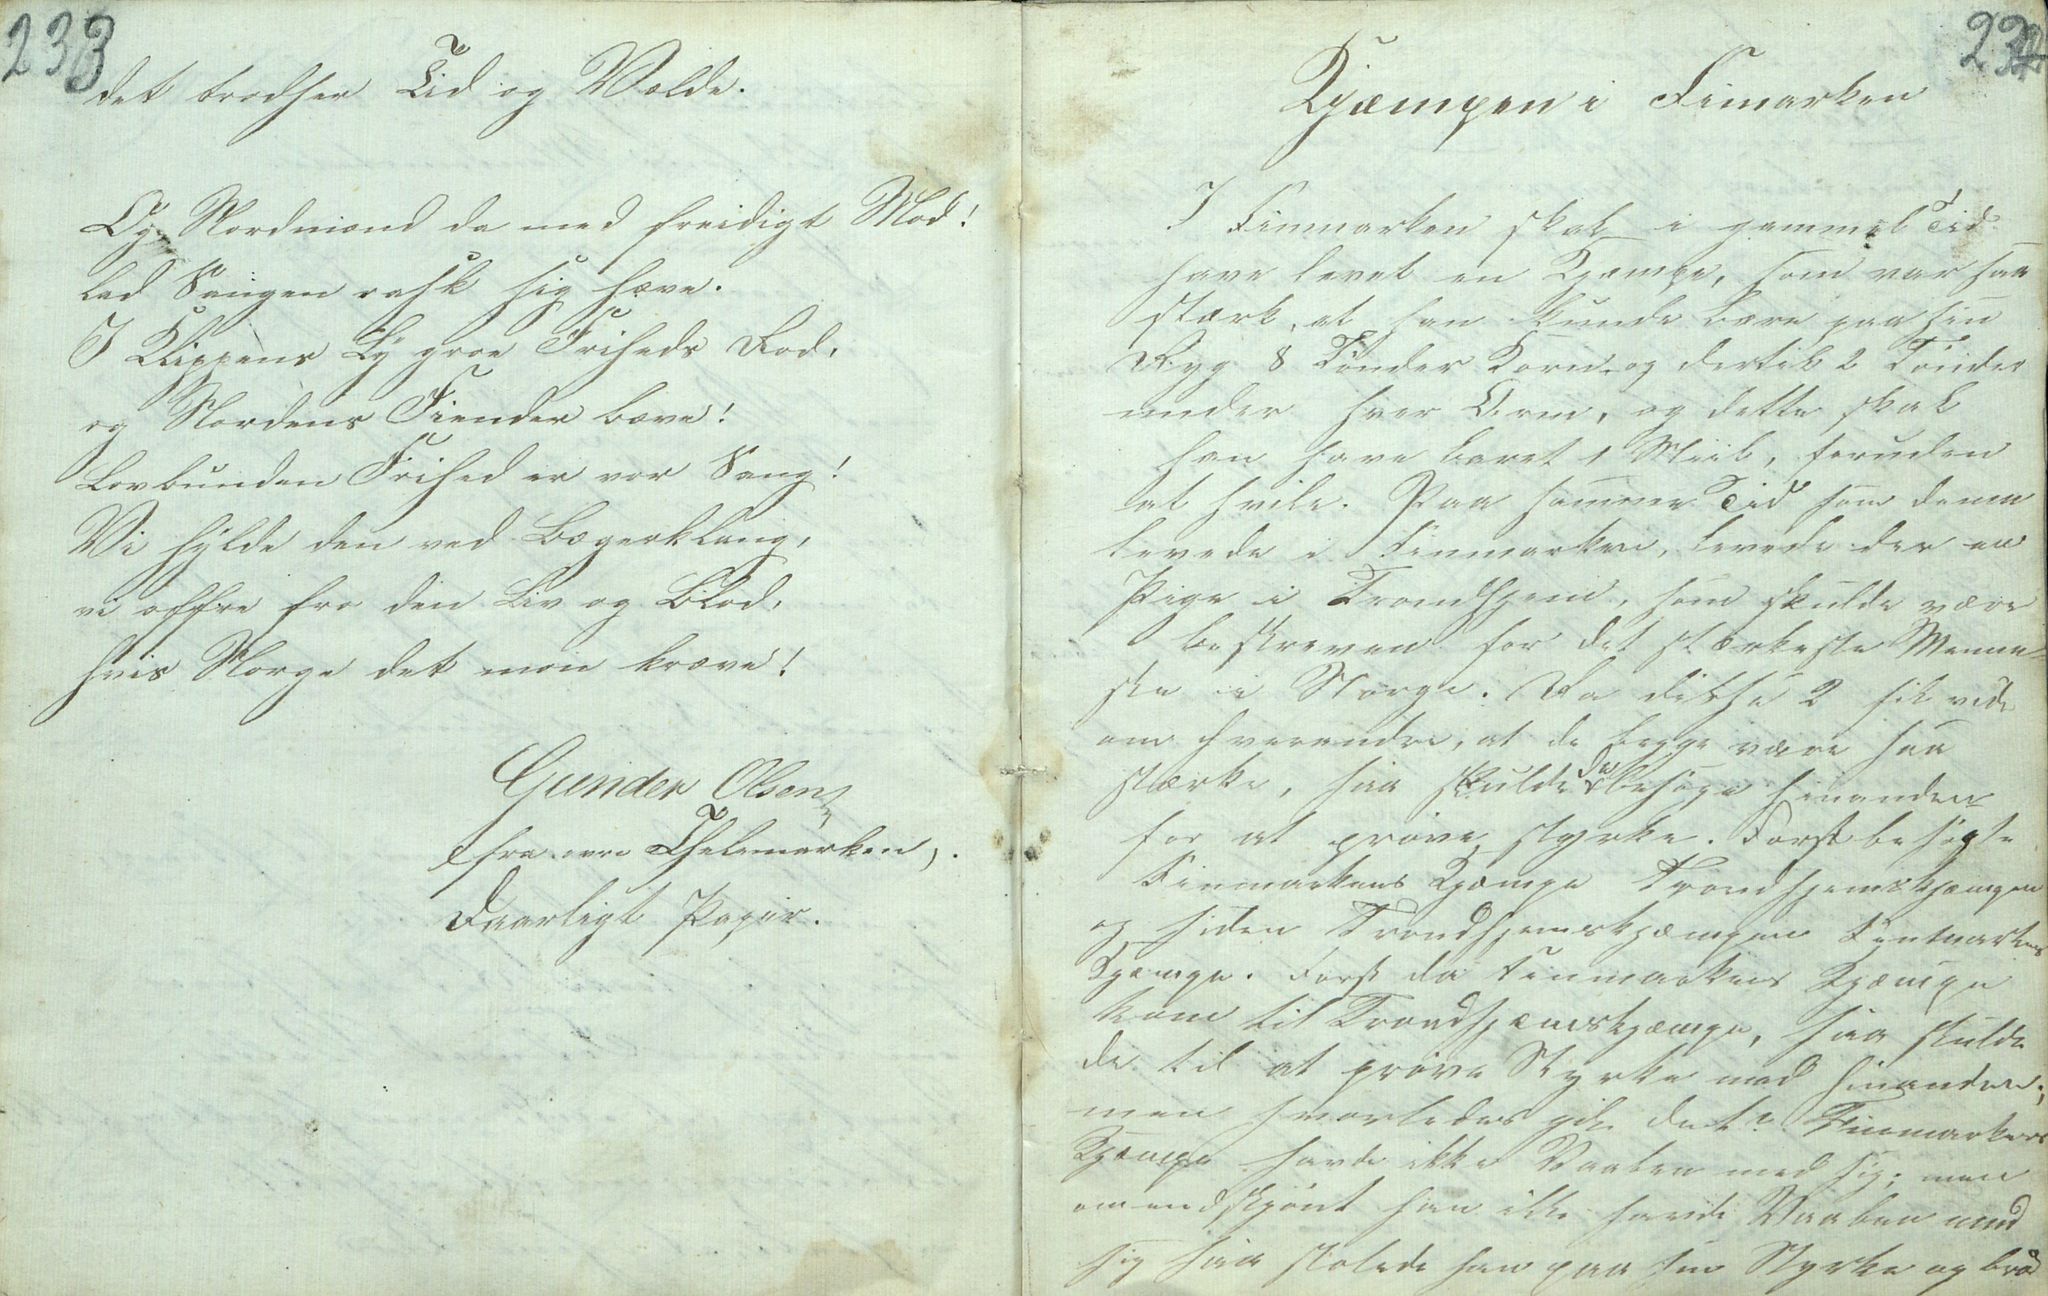 233
det trodser Tid og Vælde.
Og Nordmænd da med freidigt Mod!
lad Sangen rask sig hæve.
I Klippens Ly groe Friheds Rod,
og Nordens Fiender bæve!
Lovbunden Frihed er vor Sang!
Vi hylde den ved Bægerklang,
vi offre for den Liv og Blod,
hvis Norge det mon kræve!
Gunder Olsen
fra øvre Thelemarken,
Daarligt Papir.
234
Kjæmpen i Fimarken
I Finmarken skal i gammel Tid
have levet en Kjæmpe, som var saa
stærk, at han kunde bære paa sin
Ryg 8 Tønder Korn og dertil 2 Tønder
under hver Arm, og dette skal
han have baret 1 Miil, foruden
at hvile. Paa samme Tid som denne
levede i Finmarken, levede der en
Pige i Trondhjem, som skulde være
beskreven for det stærkeste Menne-
ske i Norge. Da disse 2 fik vide
om hverandre, at de begge være saa
stærke, saa skulde de besøge hinanden
for at prøve styrke. Først besøgte
Finmarkens Kjæmpe Trondhjemskjæmpen
og siden Trondhjemskjæmpen Finmarkens
Kjæmpe. Først da Finmarkens Kjæmpe
kom til Trondhjemskjæmpe, saa skulde
de til at prøve Styrke med hinanden;
men hvorledes gik det? Finmarkens
Kjæmpe havde ikke Vaaben med sig; men
omendskjønt han ikke havde Vaaben med
sig saa stolede han paa sin Styrke og brød